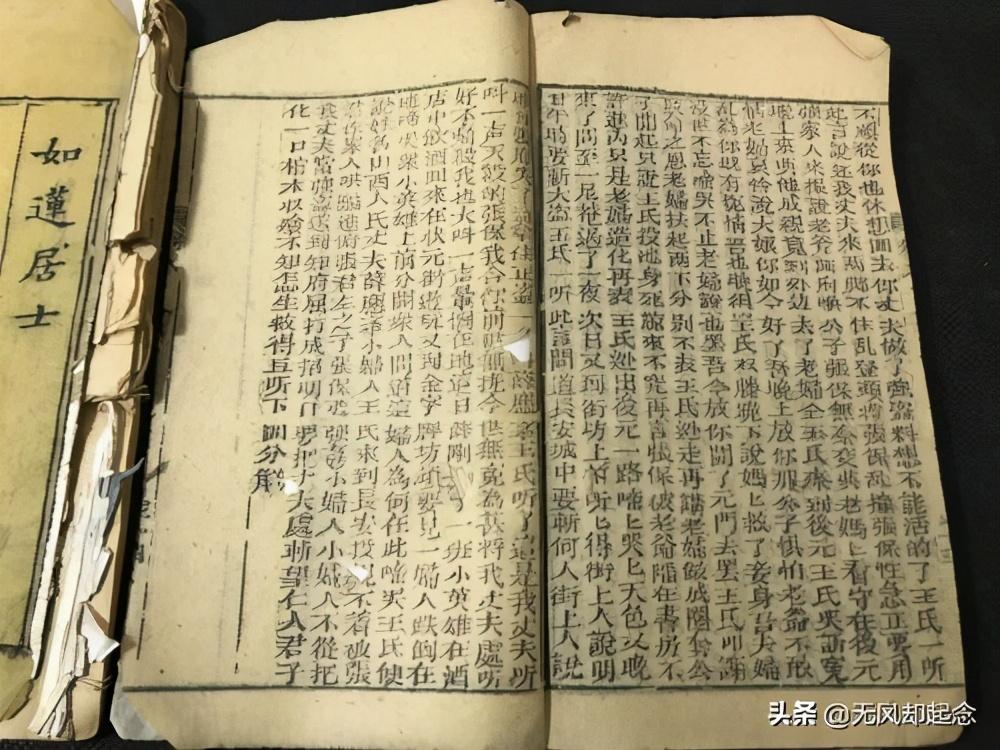 不願從你也休想回去你丈夫做了強盜料想不能活的了王氏一听
此言說还我丈夫來两脚不住乱登頭將張保乱撞張保性急正要用
強家人來报說老爷回府惧公子張保無奈交與老媽上看守在後元
晚上來與他成親竟到外边去了老嫗仝王氏來到後元王氏哭訴冤
情老嫗說大娘你如今好了吾晚上放你那公子惧怕老爺不敢
乱為你既有冤情吾也王氏双膝跪下說媽上救了妾身吾夫婦
没世不忘啼哭不止老嫗說也罢吾今放你開了元門去罢王氏叩謝
之恩老嫗扶起两下分别不表王氏逃走再講老嫗做成圈套公
了開起只說王氏投池身死說來不究再言張保被老爺陌在書房不
許進内只是老嫗造化再表王氏逃出後元一路啼上哭上天色又晚
來了同至一尼菴過了一夜次日又到街坊上前所上得街上人說明
日午時要斬大盗王氏一听此言問道長安城中要斬何人街上人説
王氏听了這是我丈夫听
叫一声天殺的張保我合你前世無今世無冤為甚將我丈夫處斬
好不痛殺我也大叫一声暈倒在地這日薛剛一班小英雄在酒
店中飲酒回來在状元街遊玩又到金字牌坊道要見一婦人跌倒在
地啼哭衆小英雄上前分開衆人問道這婦人為何在此啼哭王氏便
說妾為山西人氏丈夫薛應举小婦人王氏來到長安投親不着被張
家人哄騙進府張君左之子張保要強奸小婦人小婦人不從把
我丈夫當強盗送到知府屈打成招明日要把丈夫處斬望仁人君子
化一口棺木収殮不知怎生救得且听下回分解
如蓮居士
头条 @无风却起念